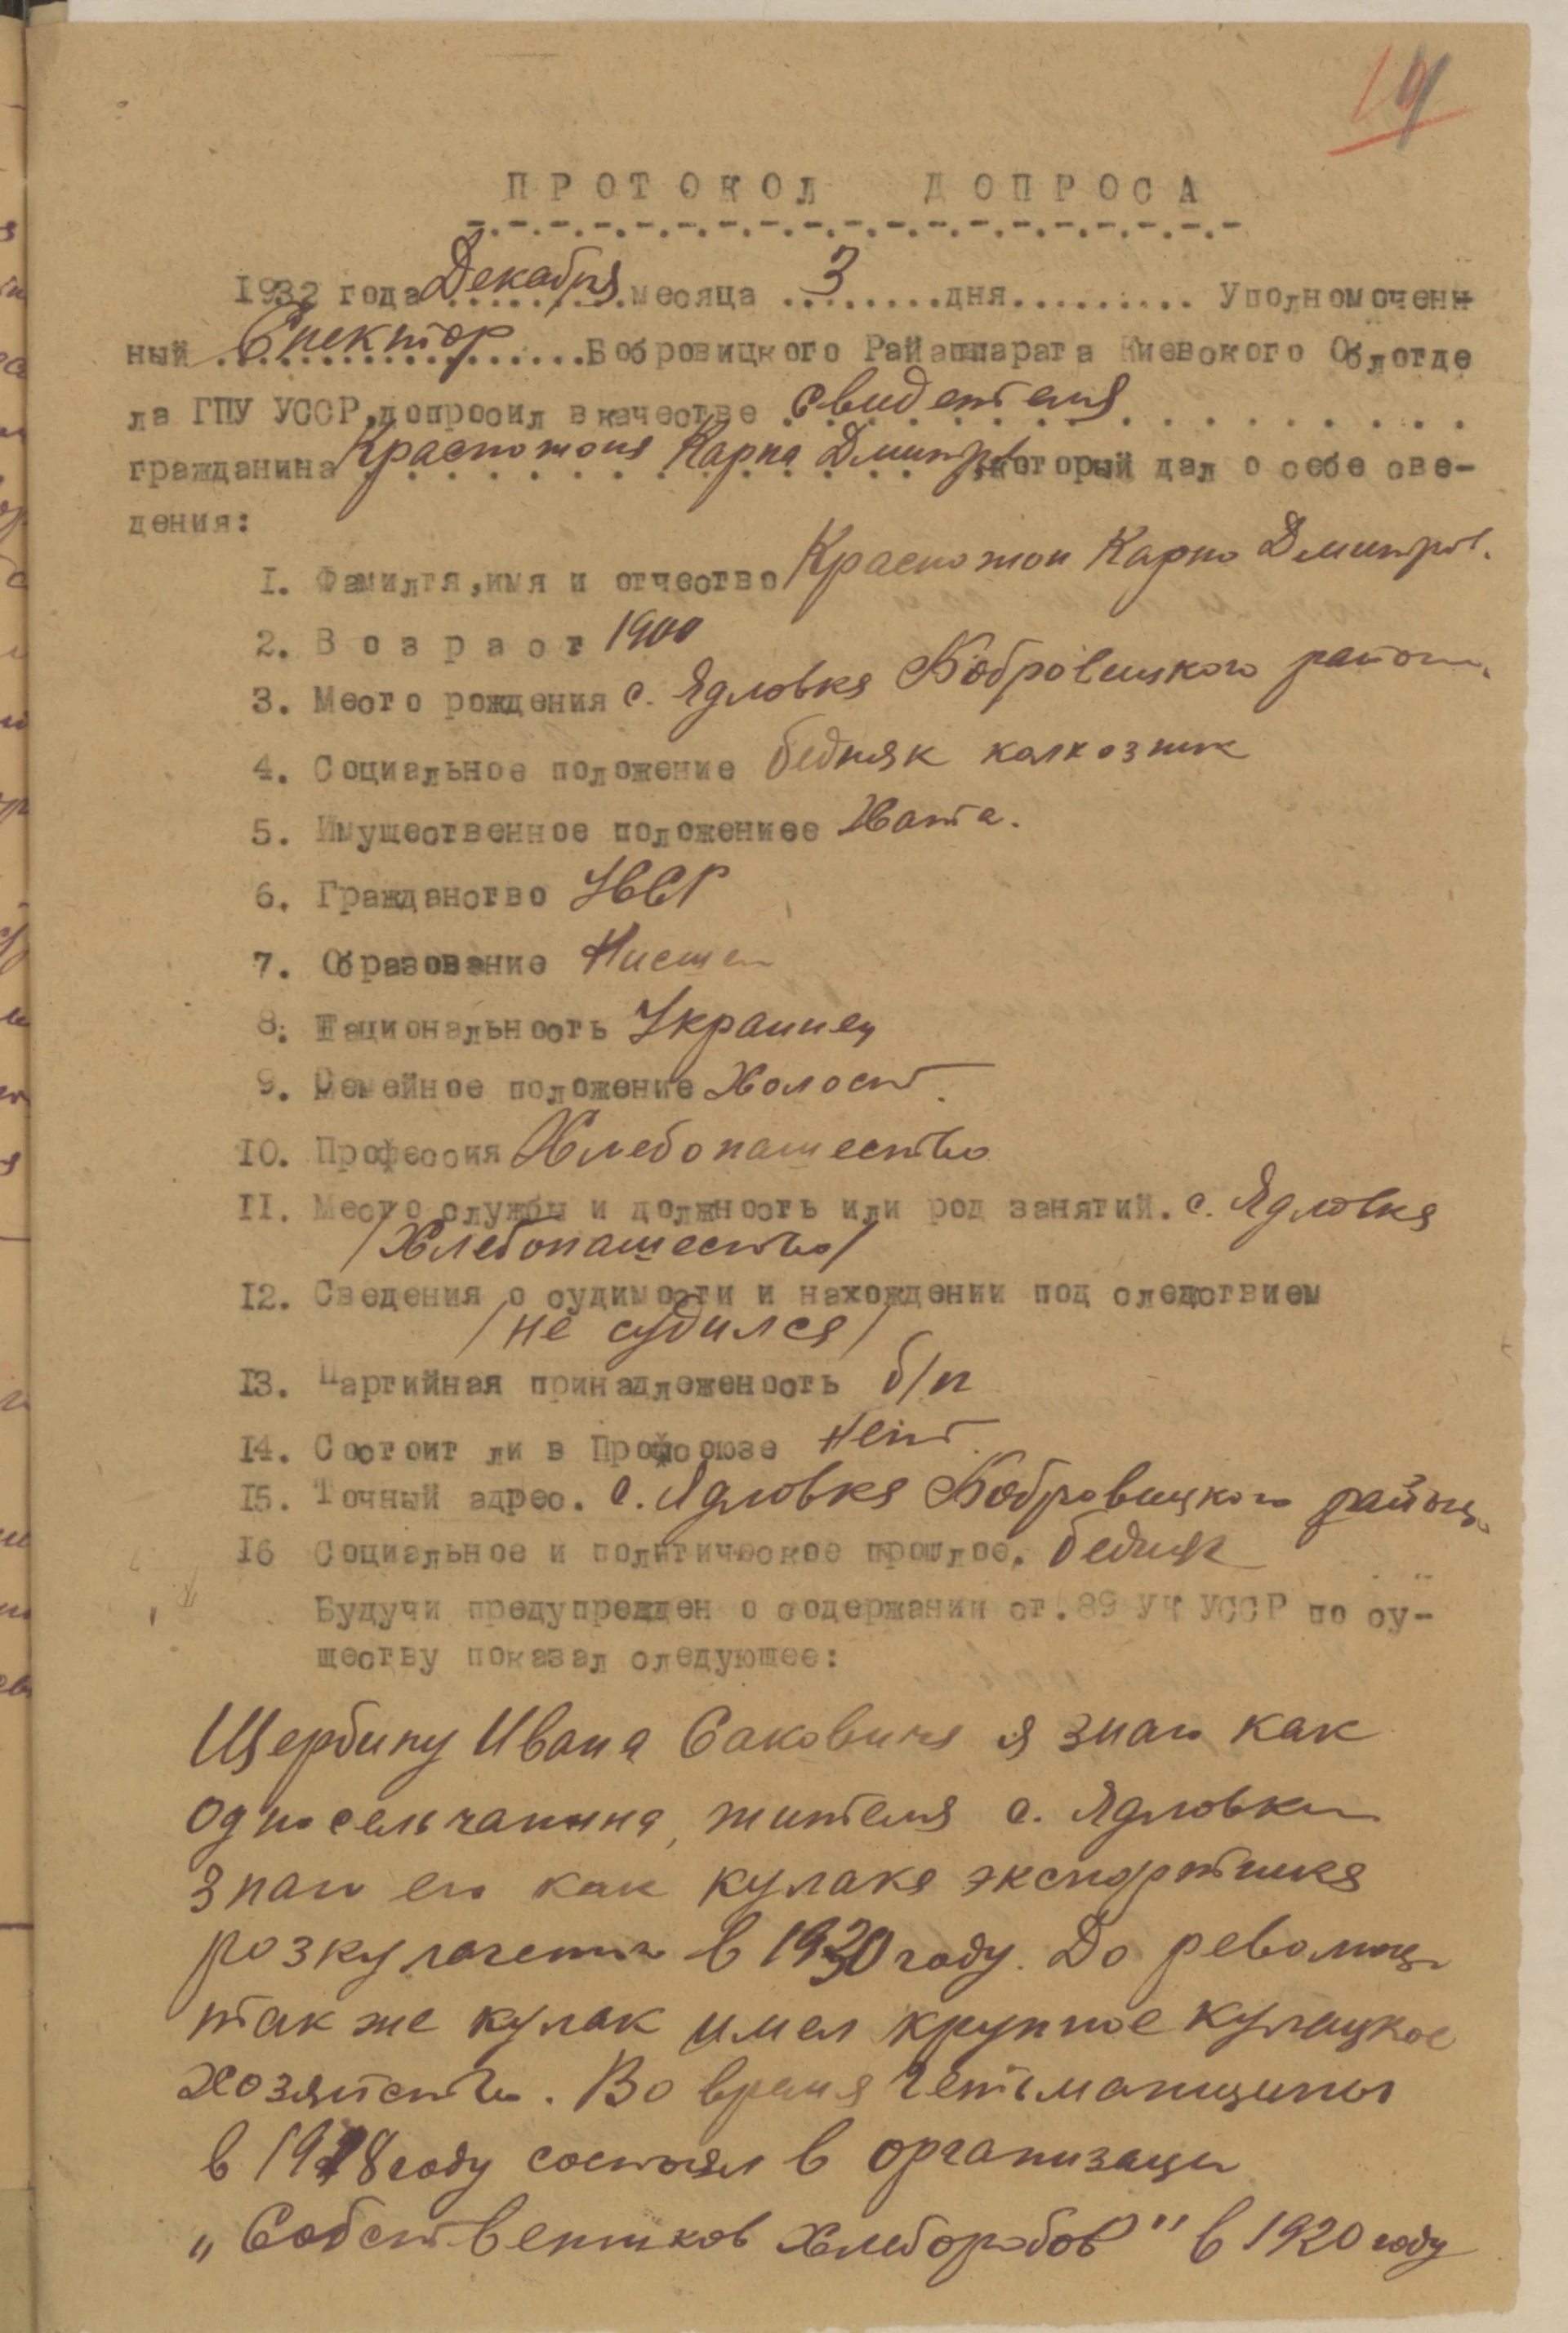 19
ПРОТОКОЛ ДОПРОСА
1932 года Декабря месяца 3 дня......... Уполномоченн
ный Спектор Бобровицкого Райаппарата Киевского Облотде
ла ГПУ УССР, допросил в качестве свидетеля
гражданина Красножоня Карпа Дмитр. который дал о себе све-
дения:
1. Фамилия, имя и отчество Красножон Карпо Дмитров.
2. Возраст 1900
3. Место рождения с. Ядловка Бобровицкого района.
4. Социальное положение бедняк колхозник
5. Имущественное положениее Хата.
6. Гражданство УССР
7. Образование Нисшее
8. Национальность Украинец
9. Семейное положение Холост.
10. Профессия Хлебопашество
11. Место службы и должность или род занятий. с. Ядловка
/Хлебопашество/
12. Сведения о судимости и нахождении под следствием
/не судился/
13. Партийная принадлеженность б/п
14. Состоит ли в Профсоюзе Нет.
15. Точный адрес. с. Ядловка Бобровицкого района.
16 Социальное и политическое прошлое. бедняк
Будучи предупрежден о содержании ст. 89 УК УССР по су-
ществу показал следующее:
Щербину Ивана Саковича я знаю как
односельчанина, жителя с. Ядловки
знаю его как кулака экспортника
розкулачено в 1930 году. До революци
так же кулак имел крупное кулацкое
хозяйство. Во время Гетьманщины
в 1918 году состоял в организаци
„Собственников Хлеборобов" в 1920 году